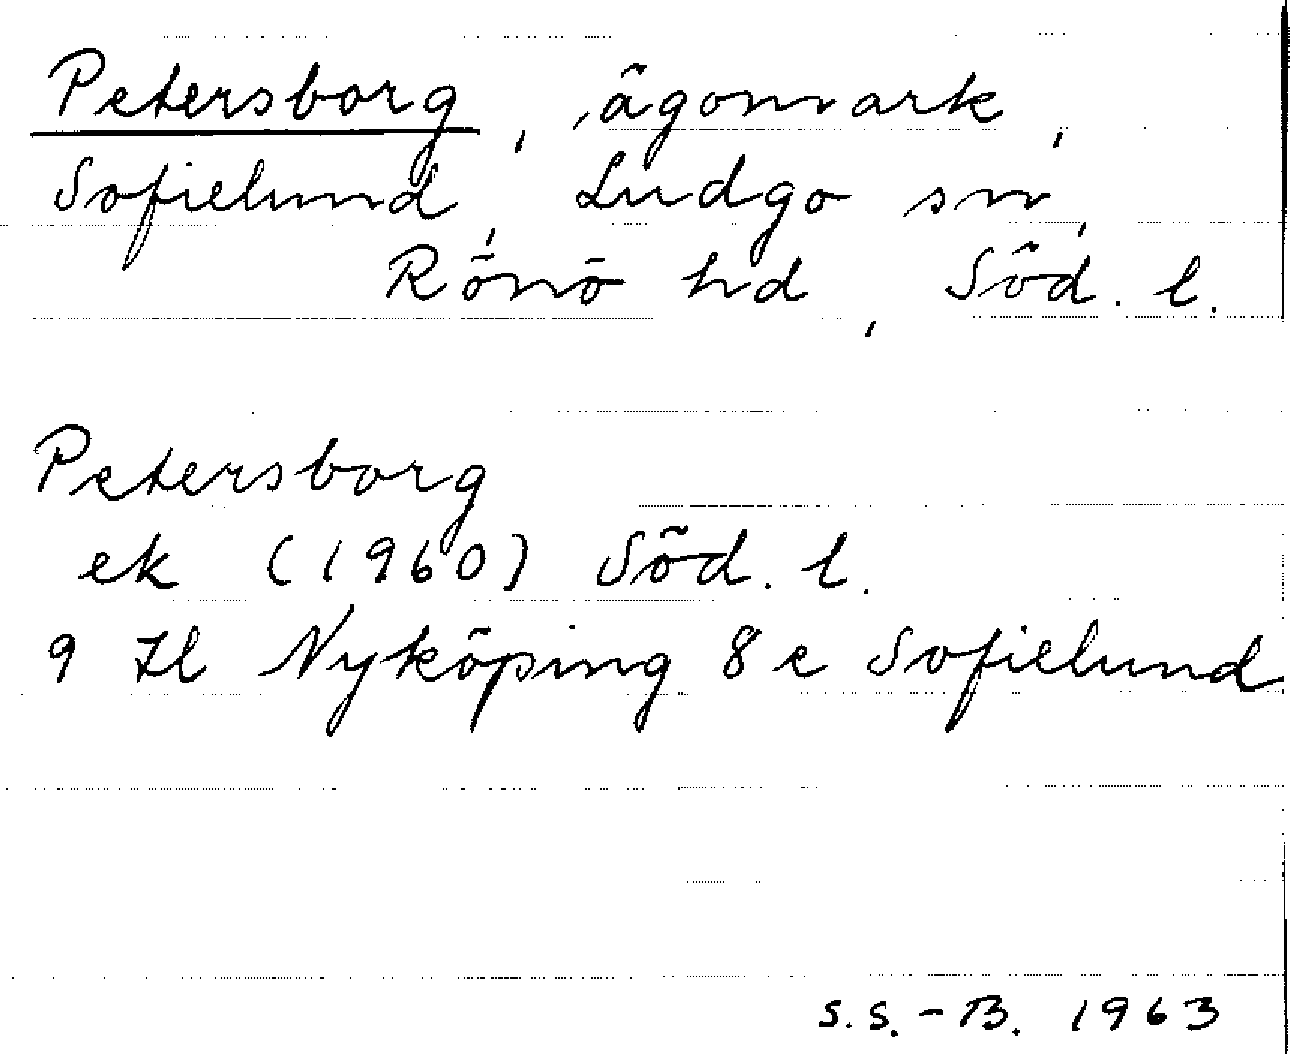 Petersborg, ägomark,
Sofielund, Ludgo sn,
Rönö hd, Söd. l.
Petersborg
ek (1960) Söd. l.
9 Il Nyköping 8 e Sofielund
S.S.-B. 1963